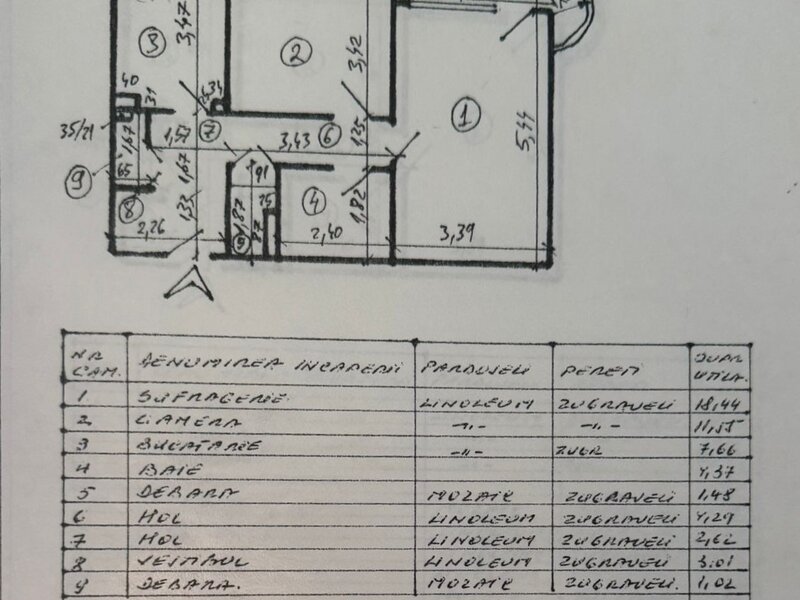 3,47
3
2
3,42
1
5,44
40
31
34
35/21
1,67
1,57
7
3,43
6
1,25
9
65
1,67
91
8
1,33
4
1,82
2,26
1,87
25
87
5
2,40
3,39
NR CAM. DENUMIREA INCAPERII PARDOSELI PERETI SUPR UTILA.
1 SUFRAGERIE LINOLEUM ZUGRAVELI 18,44
2 CAMERA -"- -"- 11,55
3 BUCATARIE -"- ZUGR 7,66
4 BAIE 4,37
5 DEBARA MOZAIC ZUGRAVELI 1,48
6 HOL LINOLEUM ZUGRAVELI 4,29
7 HOL LINOLEUM ZUGRAVELI 2,62
8 VESTIBUL LINOLEUM ZUGRAVELI 3,01
9 DEBARA. MOZAIC ZUGRAVELI. 1,02